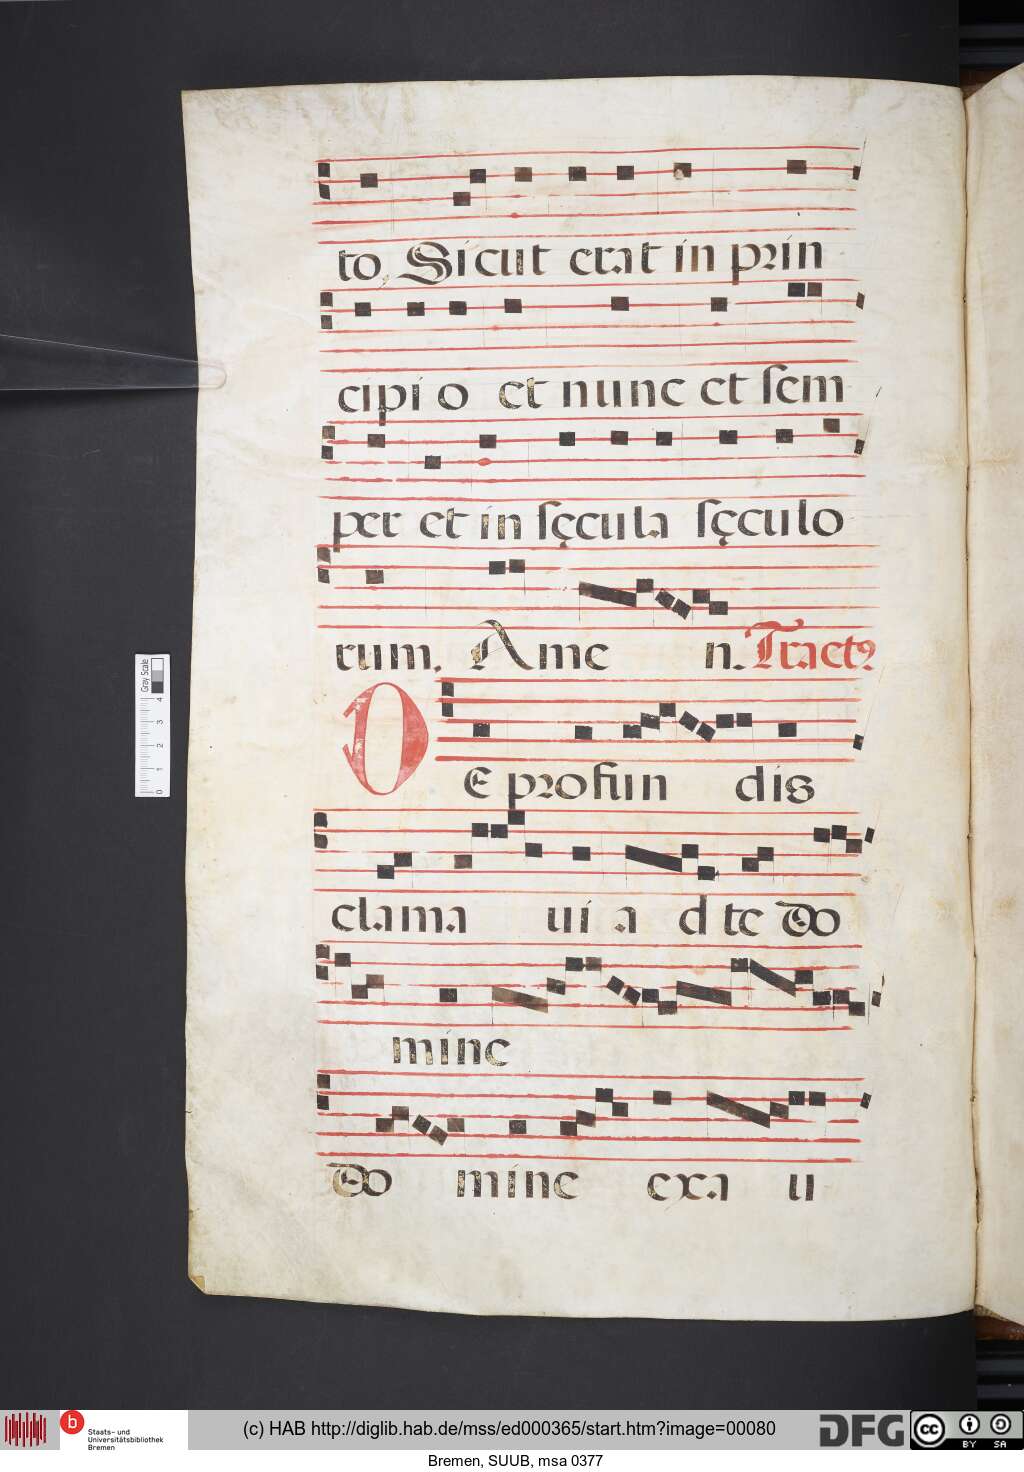 to, Sicut erat in prin
cipi o et nunc et sem
per et in sęcula sęculo
rum. Ame n. Tractꝰ
DE profun dis
clama ui a d te do
mine
do mine exa u
Gray Scale
0 1 2 3 4
b Staats- und
Universitätsbibliothek
Bremen
(c) HAB http://diglib.hab.de/mss/ed000365/start.htm?image=00080
DFG
cc BY SA
Bremen, SUUB, msa 0377